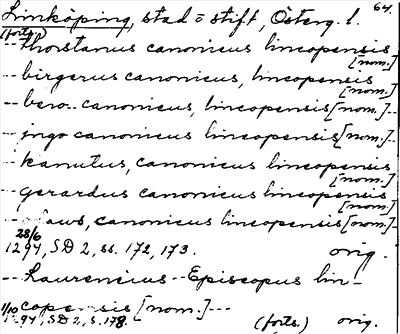 64.
Linköping, stad o stift, Österg. l.
(forts.)
-- thorstanus canonicus lincopensis
[nom.]
-- birgerus canonicus, lincopensis
[nom.]
-- bero.. canonicus, lincopensis [nom.]--
-- ingo canonicus lincopensis [nom.]--
-- kanutus, canonicus lincopensis
[nom.]
-- gerardus canonicus lincopensis
[nom.]
-- canonicus lincopensis [nom.]--
28/6
1294, SD 2, ss. 172, 173. orig.
-- Laurencius -- Episcopus lin-
copensis [nom.] ---
1/10
94, SD 2, s. 178. (forts.) orig.